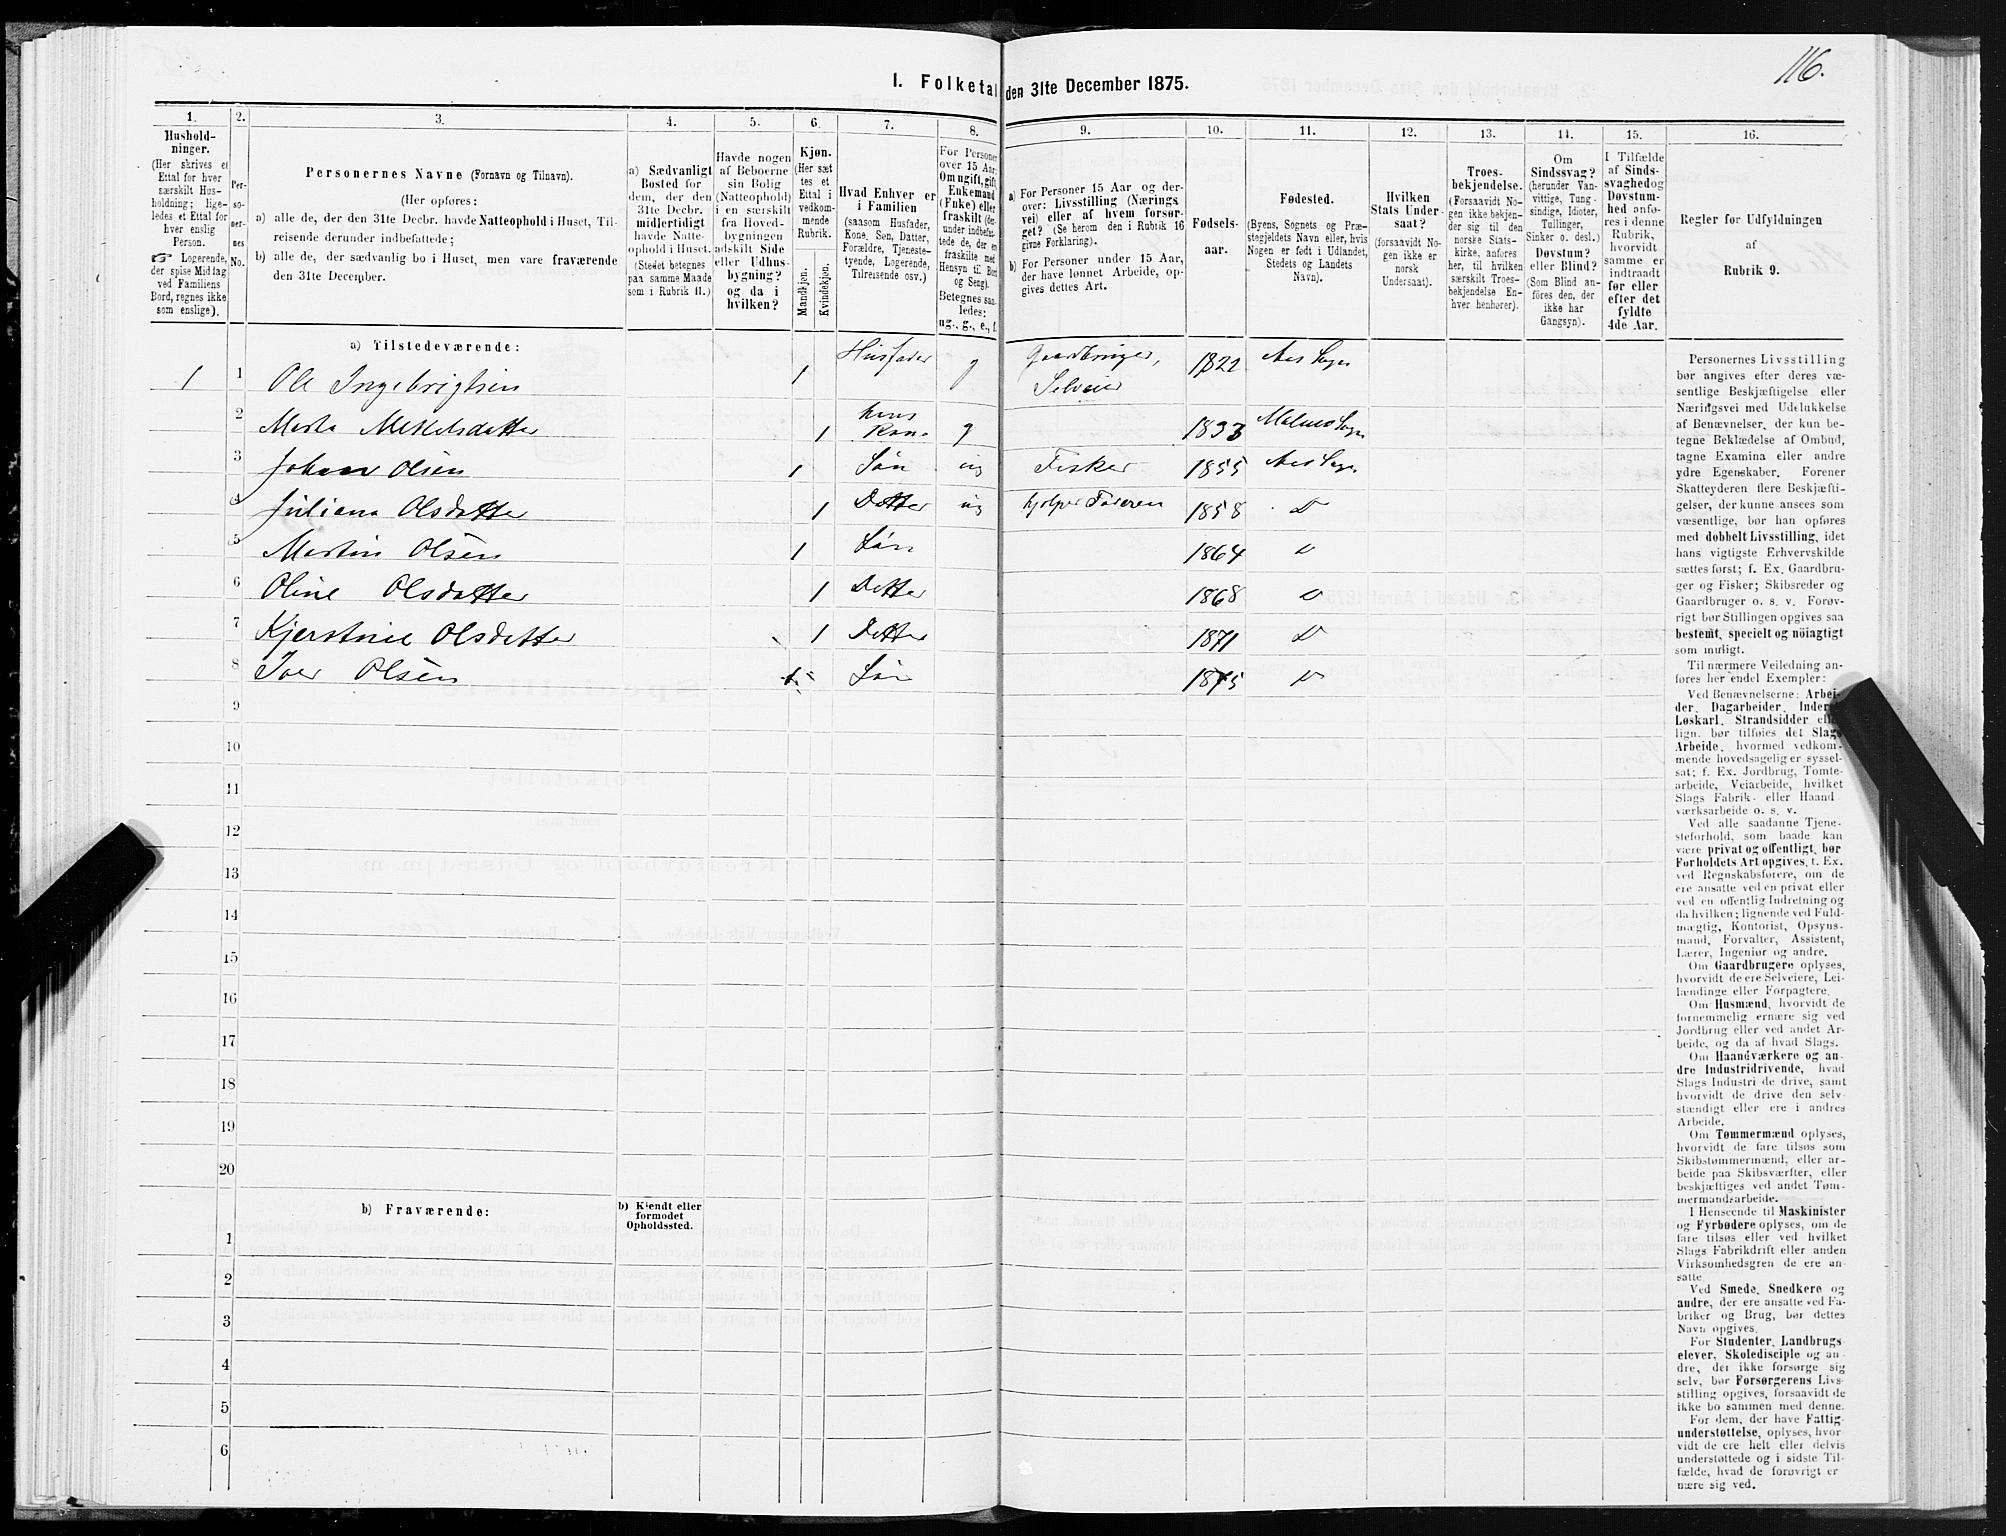 116.
I. Folketal den 31te December 1875.
1. 2. 3. 4. 5. 6. 7. 8. 9. 10. 11. 12. 13. 14. 15. 16.
Hushold-
ninger.
(Her skrives et
Ettal for hver
særskilt Hus-
holdning; lige-
ledes et Ettal for
hver enslig
Person.
☞ Logerende,
der spise Middag
ved Familiens
Bord, regnes ikke
som enslige).
Per-
so-
ner-
nes
No.
Personernes Navne (Fornavn og Tilnavn).
(Her opføres:
a) alle de, der den 31te Decbr. havde Natteophold i Huset, Til-
reisende derunder indbefattede;
b) alle de, der sædvanlig bo i Huset, men vare fraværende
den 31te December.
a) Sædvanligt
Bosted for
dem, der den
31te Decbr.
midlertidigt
havde Natte-
ophold i Huset.
(Stedet betegnes
paa samme Maade
som i Rubrik 11.)
Havde nogen
af Beboerne
sin Bolig
(Natteophold)
i en særskilt
fra Hoved-
bygningen
adskilt Side
eller Udhus-
bygning?
og da i
hvilken?
Kjøn.
(Her sæt
tes et
Ettal i
vedkom-
mende
Rubrik.
Mandkjøn.
Kvindekjøn.
Hvad Enhver er
i Familien
(saasom Husfader,
Kone, Søn, Datter,
Forældre, Tjeneste-
tyende, Logerende,
Tilreisende osv.)
For Personer
over 15 Aar:
Om ugift, gift,
Enkemand
(Enke) eller
fraskilt (der-
under indbefat-
tede de, der ere
fraskilte med
Hensyn til Bord
og Seng).
Betegnes saa-
ledes:
ug., g., e., f.
a) For Personer 15 Aar og der-
over: Livsstilling (Nærings
vei) eller af hvem forsør-
get? (Se herom den i Rubrik 16
givne Forklaring).
b) For Personer under 15 Aar,
der have lønnet Arbeide, op-
gives dettes Art.
Fødsels-
aar.
Fødested.
(Byens, Sognets og Præ-
stegjeldets Navn eller, hvis
Nogen er født i Udlandet,
Stedets og Landets
Navn).
Hvilken
Stats Under-
saat?
(forsaavidt No-
gen ikke er
norsk
Undersaat).
Troes-
bekjendelse.
(Forsaavidt No-
gen ikke bekjen-
der sig til den
norske Stats-
kirke, anføres
her, til hvilken
særskilt Troes-
bekjendelse En-
hver henhører).
Om
Sindssvag?
(herunder Van-
vittige, Tung-
sindige, Idioter,
Tullinger,
Sinker o. desl.)
Døvstum?
eller Blind?
(Som Blind an-
føres den, der
ikke har
Gangsyn).
I Tilfælde
af Sinds-
svaghed og
Døvstum-
hed anfø-
res i denne
Rubrik,
hvorvidt
samme er
indtraadt
før eller
efter det
fyldte
4de Aar.
Regler for Udfyldningen
af
Rubrik 9.
a) Tilstedeværende:
1 1 Ole Ingebrigtsen 1 Husfader g Gaardbruger, Selveier 1822 Aas Sogn
2 Marta Mekelsdatter 1 hans Kone g 1833 Malnes Sogn
3 Johan Olsen 1 Søn ug Fisker 1855 Aas Sogn
4 Juliana Olsdatter 1 Datter ug hjelper Faderen 1858 D
5 Martin Olsen 1 Søn 1864 D
6 Oline Olsdatter 1 Datter 1868 D
7 Kjerstine Olsdatter 1 Datter 1871 D
8 Iver Olsen 1 Søn 1875 D
9
10
11
12
13
14
15
16
17
18
19
20
b) Fraværende:
b) Kjendt eller
formodet
Opholdssted.
1
2
3
4
5
6
Personernes Livsstilling
bør angives efter deres væ-
sentlige Beskjæftigelse eller
Næringsvei med Udelukkelse
af Benævnelser, der kun be-
tegne Beklædelse af Ombud,
tagne Examina eller andre
ydre Egenskaber. Forener
Skatteyderen flere Beskjæfti-
gelser, der kunne ansees som
væsentlige, bør han opføres
med dobbelt Livsstilling, idet
hans vigtigste Erhvervskilde
sættes først; f. Ex. Gaardbru-
ger og Fisker; Skibsreder og
Gaardbruger o. s. v. Forøv-
rigt bør Stillingen opgives saa
bestemt, specielt og nöiagtigt
som muligt.
Til nærmere Veiledning an-
føres her endel Exempler:
Ved Benævnelserne: Arbei-
der, Dagarbeider, Inderst,
Løskarl, Strandsidder eller
lign. bør tilføies det Slags
Arbeide, hvormed vedkom-
mende hovedsagelig er syssel-
sat; f. Ex. Jordbrug, Tomte-
arbeide, Veiarbeide, hvilket
Slags Fabrik- eller Haand-
værksarbeide o. s. v.
Ved alle saadanne Tjene-
steforhold, som baade kan
være privat og offentligt, bør
Forholdets Art opgives, t. Ex.
ved Regnskabsførere, om de
ere ansatte ved en privat eller
ved en offentlig Indretning og
da hvilken; lignende ved Fuld-
mægtig, Kontorist, Opsyns-
mand, Forvalter, Assistent,
Lærer, Ingeniør og andre.
Om Gaardbrugere oplyses,
hvorvidt de ere Selveiere, Lei-
lændinge eller Forpagtere.
Om Husmænd, hvorvidt de
fornemmelig ernære sig ved
Jordbrug eller ved andet Ar-
beide, og da af hvad Slags.
Om Haandværkere og an-
dre Industridrivende, hvad
Slags Industri de drive, samt
hvorvidt de drive den selv-
stændigt eller ere i andres
Arbeide.
Om Tømmermænd oplyses,
hvorvidt de fare tilsøs som
Skibstømmermænd, eller ar-
beide paa Skibsværfter, eller
beskjæftiges ved andet Tøm-
mermandsarbeide.
I Henseende til Maskinister
og Fyrbødere oplyses, om de
fare tilsøs eller ved hvilket
Slags Fabrikdrift eller anden
Virksomhedsgren de ere an-
satte.
Ved Smede, Snedkere og
andre, der ere ansatte ved Fa-
briker og Brug, bør dettes
Navn opgives.
For Studenter, Landbrugs-
elever, Skoledisciple og an-
dre, der ikke forsørge sig
selv, bør Forsørgerens Livs-
stilling opgives, forsaavidt de
ikke bo sammen med denne.
For dem, der have Fattig-
understøttelse, oplyses, hvor
vidt de ere helt eller delvis
understøttede og i sidste Til-
fælde, hvad de forøvrigt er-
nære sig ved.